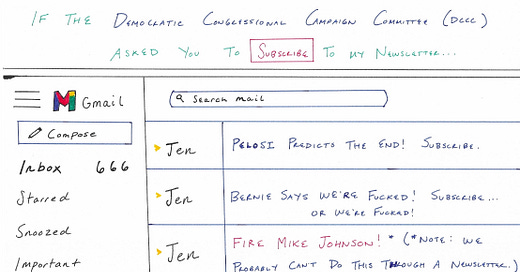 IF THE DEMOCRATIC CONGRESSIONAL CAMPAIGN COMMITTEE (DCCC)
ASKED YOU TO SUBSCRIBE TO MY NEWSLETTER...
Gmail
Search mail
Compose
Inbox 666
Starred
Snoozed
Important
Jen
PELOSI PREDICTS THE END! SUBSCRIBE.
Jen
BERNIE SAYS WE'RE FUCKED! SUBSCRIBE...
OR WE'RE FUCKED!
Jen
FIRE MIKE JOHNSON! * (*NOTE: WE
PROBABLY CAN'T DO THIS THROUGH A NEWSLETTER.)